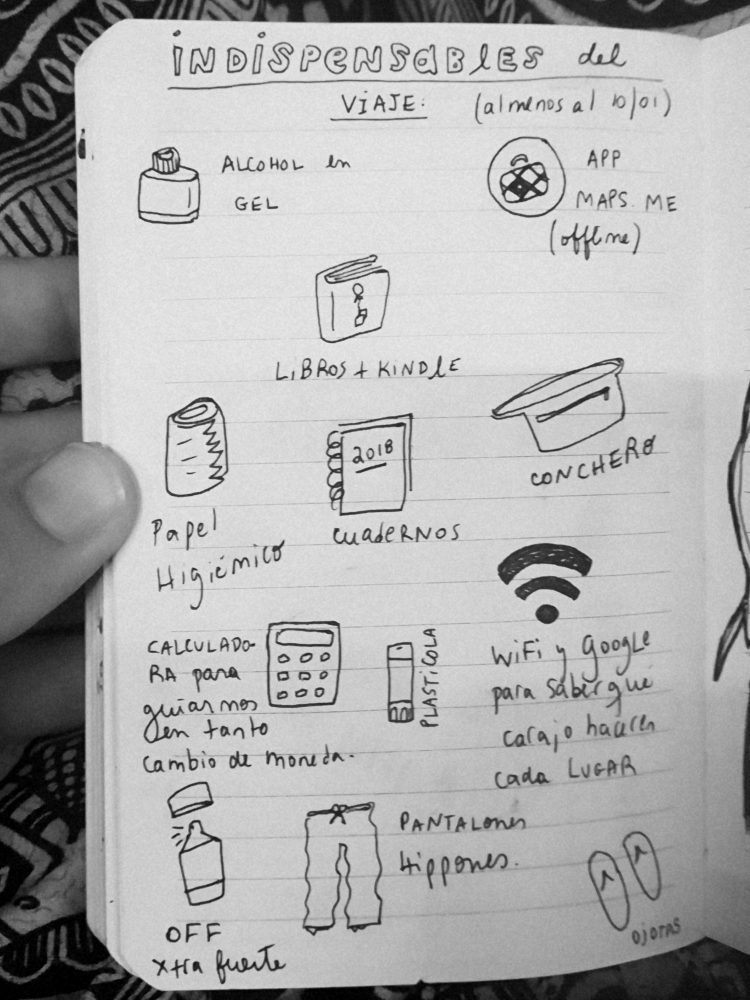 iNDiSPENSABLES del
VIAJE: (al menos al 10/01)
ALCOHOL en
GEL
APP
MAPS.ME
(offline)
LiBROS + KiNDlE
Papel
Higiémico
2018
cuadeRNOS
CONCHERO
CALCULADO-
RA para
guiarnos
en tanto
cambio de moneda.
PLASTiCOLA
WiFi y Google
para saber qué
carajo hacer en
cada LUGAR
OFF
xtra fuerte
PANTALones
Hippones.
OJOTAS